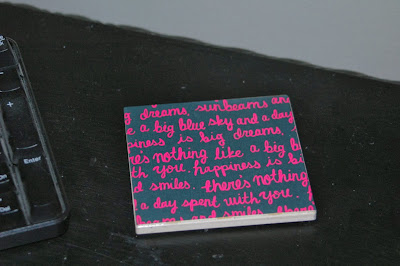 g dreams, sunbeams and
e a big blue sky and a day
piness is big dreams,
re's nothing like a big b
th you. happiness is bi
d smiles. there's nothing
a day spent with you.
beams and smiles. there
Enter